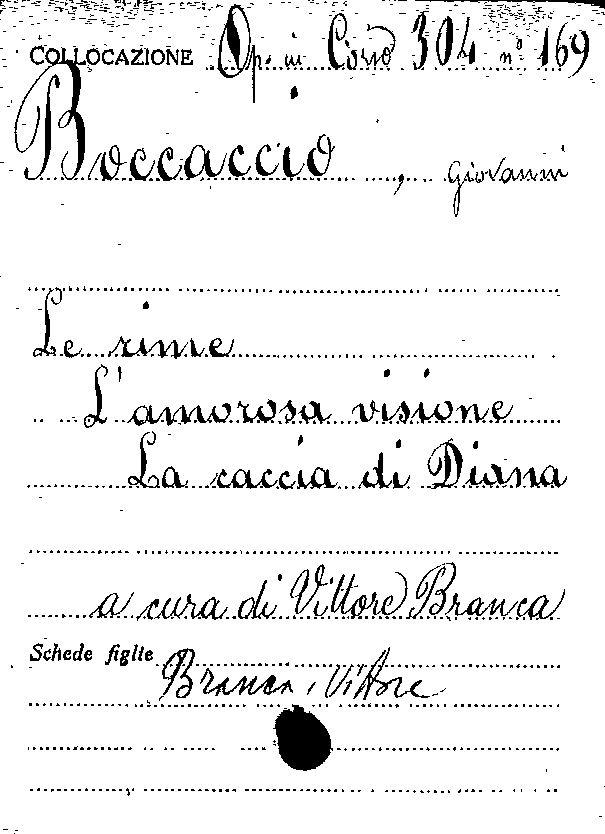 COLLOCAZIONE Op. in Corso 304 n° 169
Boccaccio, Giovanni
Le rime
L'amorosa visione
La caccia di Diana
a cura di Vittore Branca
Schede figlie
Branca, Vittore